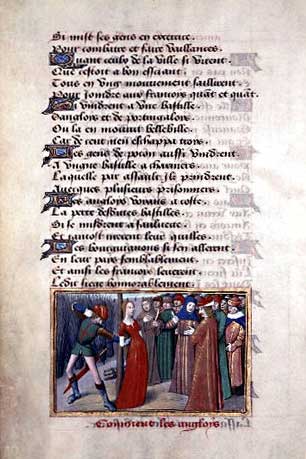 Si mist ses gens en exercite.
Pour combatre et faire vaillances.
Quant ceulx de la ville si virent.
Que cestoit a bon escient.
Tous en ung mouvement saillirent.
Pour joindre aux francois quat et quat.
Si vindrent a une bastille.
Danglois et de portugalois.
Ou la en mourut
Car de cent nen eschappa trois.
Les gens de poton aussi vindrent.
A ungne bastille a
Laquelle par assault ilz prindrent.
Avecques plusieurs prisonniers.
Les anglois voyans a coste.
La perte desdites bastilles.
Si se misdrent a sauvete.
Et tantost leurs quilles.
Les bourguignons si sen allerent.
En leur pays semblablement.
Et ainsi les francois leverent.
Ledit siege honnorablement.
les anglois